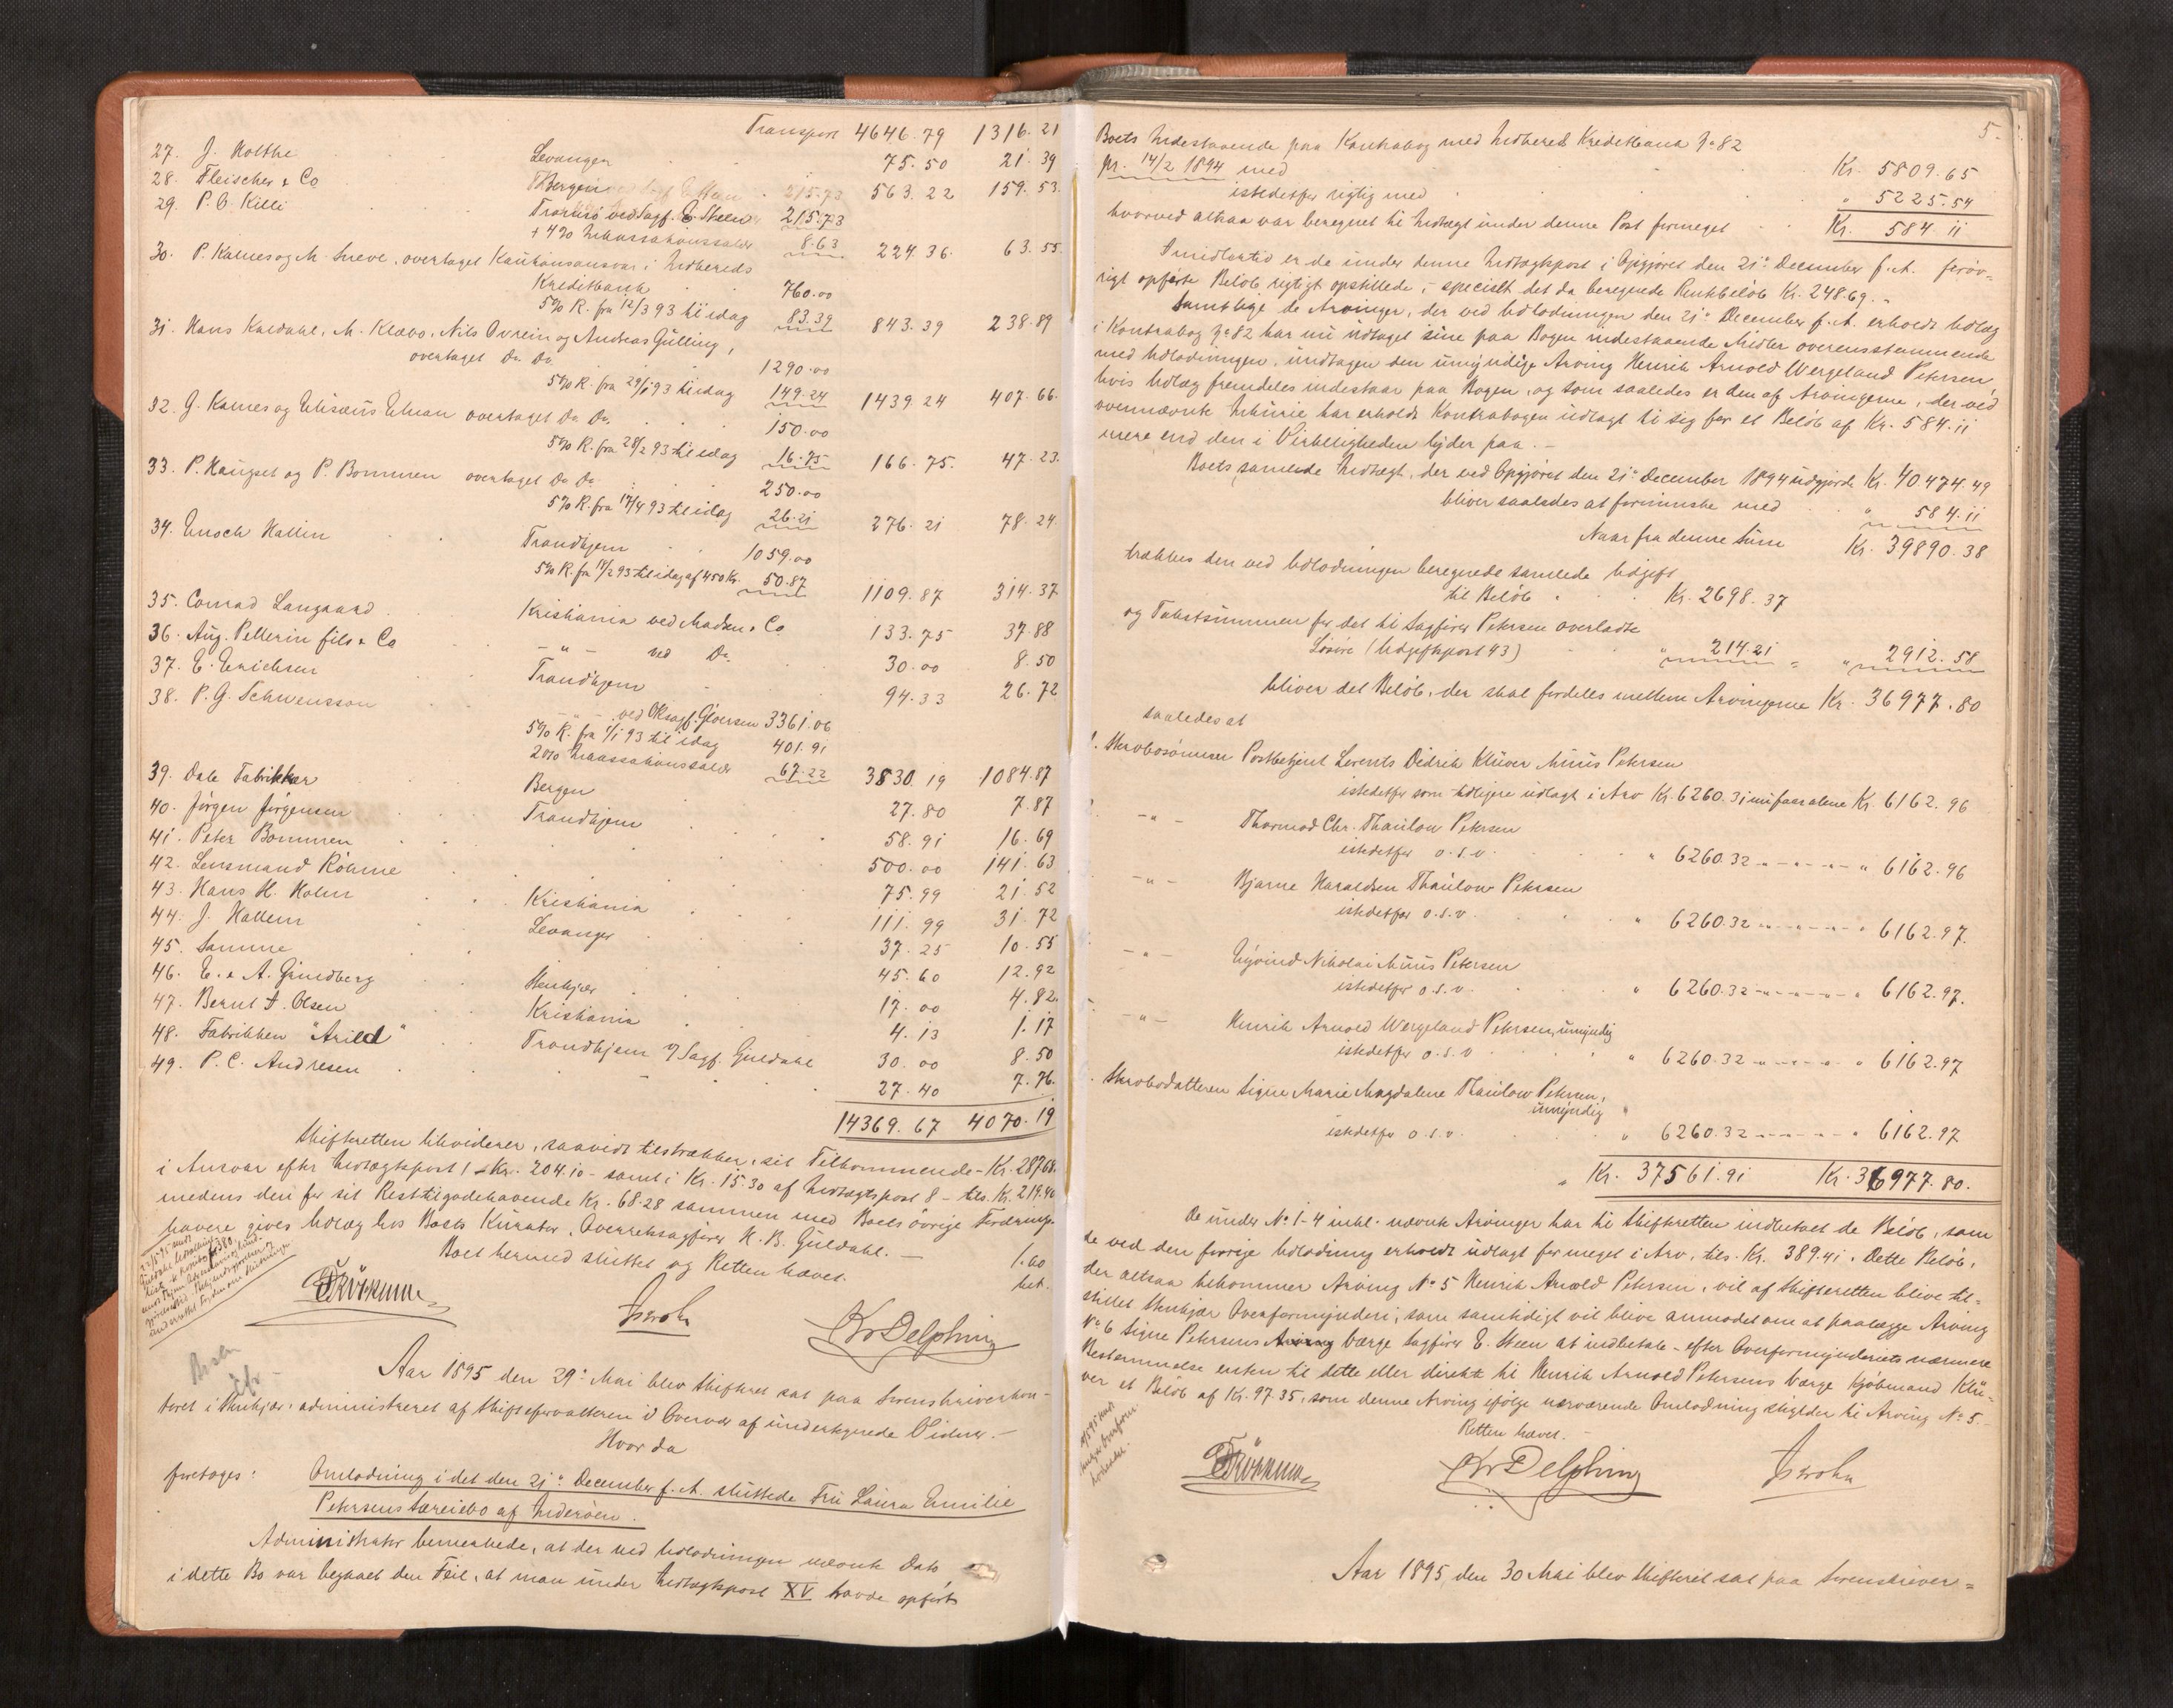 Transport 4646.79 1316.21
27. J. Holthe Levanger 75.50 21.39
28. Fleischer & Co Bergen 563.22 159.53
29. P. C. Killi Tromsö ved Sagf. E. Steen 215.73
+ 4% Inkassationssalær 8.63 224.36 63.55
30. P. Kalnes og M. Sneve, overtaget Kautionsansvar i Indhereds
Kreditbank 760.00
5% R. fra 12/3 93 til idag 83.39 843.39 238.89
31. Hans Kaldahl, M. Klæbo, Nils Ovrein og Andreas Gulling,
overtaget Do Do 1290.00
5% R. fra 29/1 93 til idag 149.24 1439.24 407.66
32. G. Kalnes og Elisæus Elnan overtaget Do Do 150.00
5% R. fra 28/2 93 til idag 16.75 166.75 47.23
33. P. Haugset og P. Bommen overtaget Do Do 250.00
5% R. fra 17/4 93 til idag 26.21 276.21 78.24
34. Enoch Hallin Trondhjem 1059.00
5% R. fra 18/2 93 til idag af 450 Kr. 50.87 1109.87 314.37
35. Conrad Langaard Kristiania ved Madsen & Co 133.75 37.88
36. Aug. Pellerin fils & Co - " - ved Do 30.00 8.50
37. E. Erichsen Trondhjem 94.33 26.72
38. P. G. Schwensson - " - ved ORsagf. Gløersen 3361.06
5% R. fra 1/1 93 til idag 401.91
2% Inkassationssalær 67.22 3830.19 1084.87
39. Dale Fabrikker Bergen 27.80 7.87
40. Jörgen Jörgensen Trondhjem 58.91 16.69
41. Peter Bommen 500.00 141.63
42. Lensmand Röhme 75.99 21.52
43. Hans H. Holm Kristiania 111.99 31.72
44. J. Hallem Levanger 37.25 10.55
45. Samme 45.60 12.92
46. E. & A. Grindberg Stenkjær 17.00 4.82
47. Bernt F. Olsen Kristiania 4.13 1.17
48. Fabrikken "Arild" Trondhjem v/ Sagf. Guldahl 30.00 8.50
49. P. C. Andresen - 27.40 7.76
14369.67 4070.19
Skifteretten likviderer, saavidt tilstrækker, sit Tilkommende - Kr. 287.68
i Ansvar efter Indtægtspost 1 - Kr. 204.10 - samt i Kr. 15.30 af Indtægtspost 8 - tils. Kr. 219.40
medens den for sit Resttilgodehavende Kr. 68.28 sammen med Boets övrige Fordrings-
havere gives Udlæg hos Boets Kurator, Overretssagförer H. B. Guldahl.
Boet hermed sluttet og Retten hævet.
Aar 1895 den 29de Mai blev Skifteret sat paa Sorenskriverkon-
toret i Stenkjær, administreret af Skifteforvalteren i Overvær af undertegnede Vidner.-
Hvor da
foretoges: Omlodning i det den 21de December f. A. sluttede Fru Laura Emilie
Petersens Særeiebo af Inderöen.
Administrator bemerkede, at der ved Udlodningen nævnte Dato
i dette Bo var begaaet den Feil, at man under Indtægtspost XV havde opfört
5.
Boets Indestaaende paa Kontrabog med Indhereds Kreditbank No 82
pr. 14/2 1894 med Kr. 5809.65
istedetfor rigtig med " 5225.54
hvorved altsaa var beregnet til Indtægt under denne Post formeget Kr. 584.11
Imidlertid er de under denne Indtægtspost i Opgjöret den 21de December f. A. foröv-
rigt opförte Belöb rigtigt opstillede, specielt det da beregnede Rentebelöb Kr. 248.69.-
Samtlige de Arvinger, der ved Udlodningen den 21de December f. A. erholdt Udlæg
i Kontrabog No 82 har nu udtaget sine paa Bogen indestaaende Midler overensstemmende
med Udlodningen, undtagen den umyndige Arving Henrik Arnold Wergeland Petersen,
hvis Udlæg fremdeles indestaar paa Bogen, og som saaledes er den af Arvingerne, der ved
ovennævnte Inkurie har erholdt Kontrabogen udlagt til sig for et Belöb af Kr. 584.11
mere end den i Virkeligheden lyder paa.-
Boets samlede Indtægt, der ved Opgjöret den 21de December 1894 udgjorde Kr. 40,474.49
bliver saaledes at formindske med " 584.11
Naar fra denne Sum Kr. 39890.38
trækkes den ved Udlodningen beregnede samlede Udgift
til Belöb Kr. 2698.37
og Tabssummen for det til Sagförer Petersen overladte
Lösöre (Udgiftspost 43) " 214.21 = " 2912.58
bliver det Belöb, der skal fordeles mellem Arvingerne Kr. 36977.80
saaledes at
1. Skrobosönnen Postbetjent Lorents Didrik Klüver Muus Petersen
istedetfor som tidligere udlagt i Arv Kr. 6260.31 nu faar alene Kr. 6162.96
- " - Thormod Chr. Thaulow Petersen
istedetfor o.s.v. " 6260.32 - " - " - " 6162.96
- " - Bjarne Haraldsen Thaulow Petersen
istedetfor o.s.v. " 6260.32 - " - " - " 6162.97
- " - Eyvind Nikolai Muus Petersen
istedetfor o.s.v. " 6260.32 - " - " - " 6162.97
- " - Henrik Arnold Wergeland Petersen, umyndig
istedetfor o.s.v. " 6260.32 - " - " - " 6162.97
Skrobodatteren Signe Marie Magdalene Thaulow Petersen,
umyndig
istedetfor o.s.v. " 6260.32 - - - - " 6162.97
" Kr. 37561.91 Kr. 36977.80.
De under No 1-4 inkl. nævnte Arvinger har til Skifteretten indbetalt de Belöb, som
de ved den forrige Udlodning erholdt udlagt formeget i Arv, tils. Kr. 389.41. Dette Belöb,
der altsaa tilkommer Arving No 5 Henrik Arnold Petersen, vil af Skifteretten blive til-
stillet Stenkjær Overformynderi, som samtidigt vil blive anmodet om at paalægge Arving
No 6 Signe Petersens Værge Sagförer E. Steen at indbetale - efter Overformynderiets nærmere
Bestemmelse enten til dette eller direkte til Henrik Arnold Petersens Værge Kjöbmand Klü-
ver et Belöb af Kr. 97.35, som denne Arving ifölge nærværende Omlodning skylder til Arving No 5.-
Retten hævet.-
Kr Delphin
Aar 1895 den 30 Mai blev Skifteret sat paa Sorenskriver-